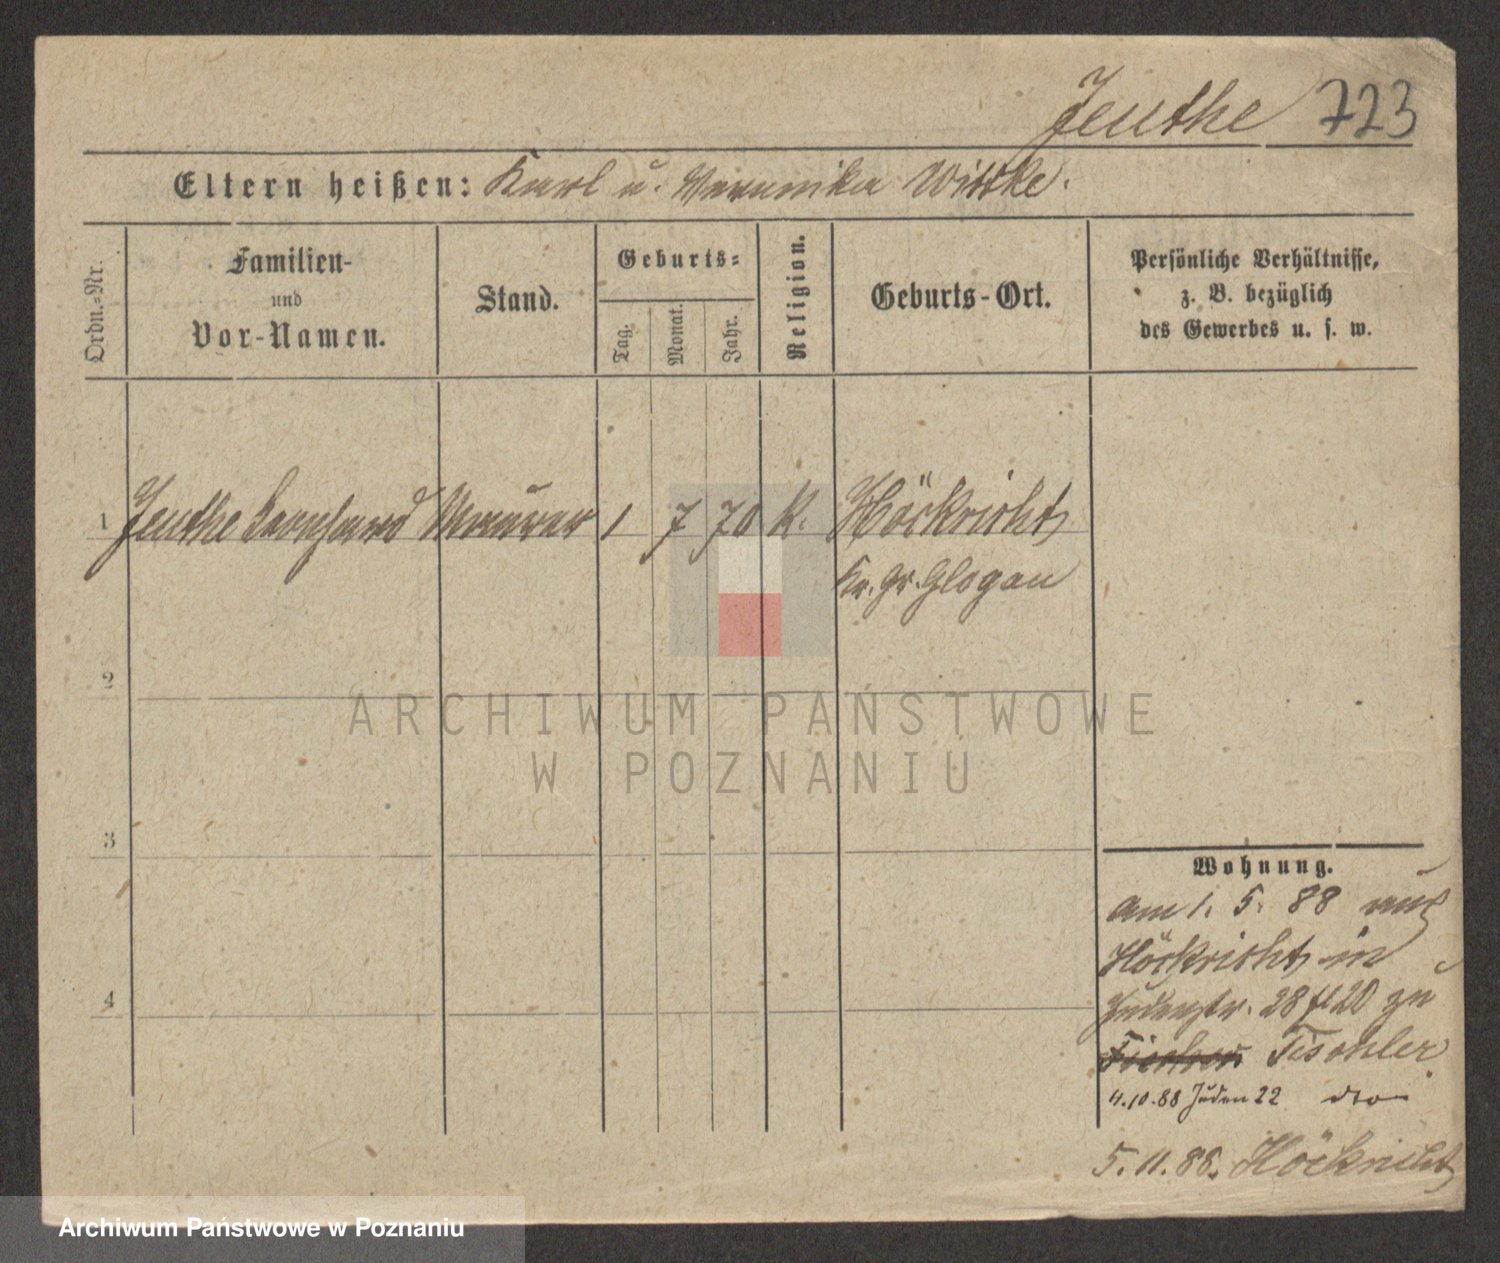 Jeuthe 723
Eltern heißen: Karl u. Veronika Wittke.
Ordn.=Nr.
Familien-
und
Vor-Namen.
Stand.
Geburts=
Tag.
Monat.
Jahr.
Religion.
Geburts-Ort.
Persönliche Verhältnisse,
z. B. bezüglich
des Gewerbes u. s. w.
1 Jeuthe Bernhard Maurer 1 7 70 K. Höckricht
Kr. Gr. Glogau
2
3
4
Wohnung.
am 1. 5. 88 aus
Höckricht in
Judenstr. 28 zu
Tischler
4.10.88 Juden 22 dto
5. 11. 88. Höckricht
ARCHIWUM PAŃSTWOWE
W POZNANIU
Archiwum Państwowe w Poznaniu